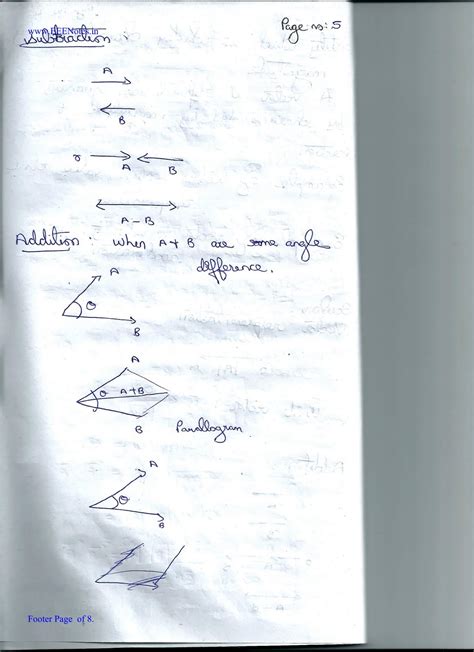 www.EEENotes.in
Page no: 5
Subtraction
A
B
A B
A - B
Addition : When A + B are some angle
difference.
A
θ
B
A
θ A+B
B
Parallogram
A
θ
B
Footer Page of 8.